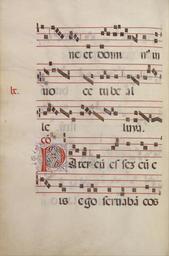 ne et domi nus in
lx.
no ce tu be al
le luia.
co
Pater cu es sez cu e
is ego servabā eos